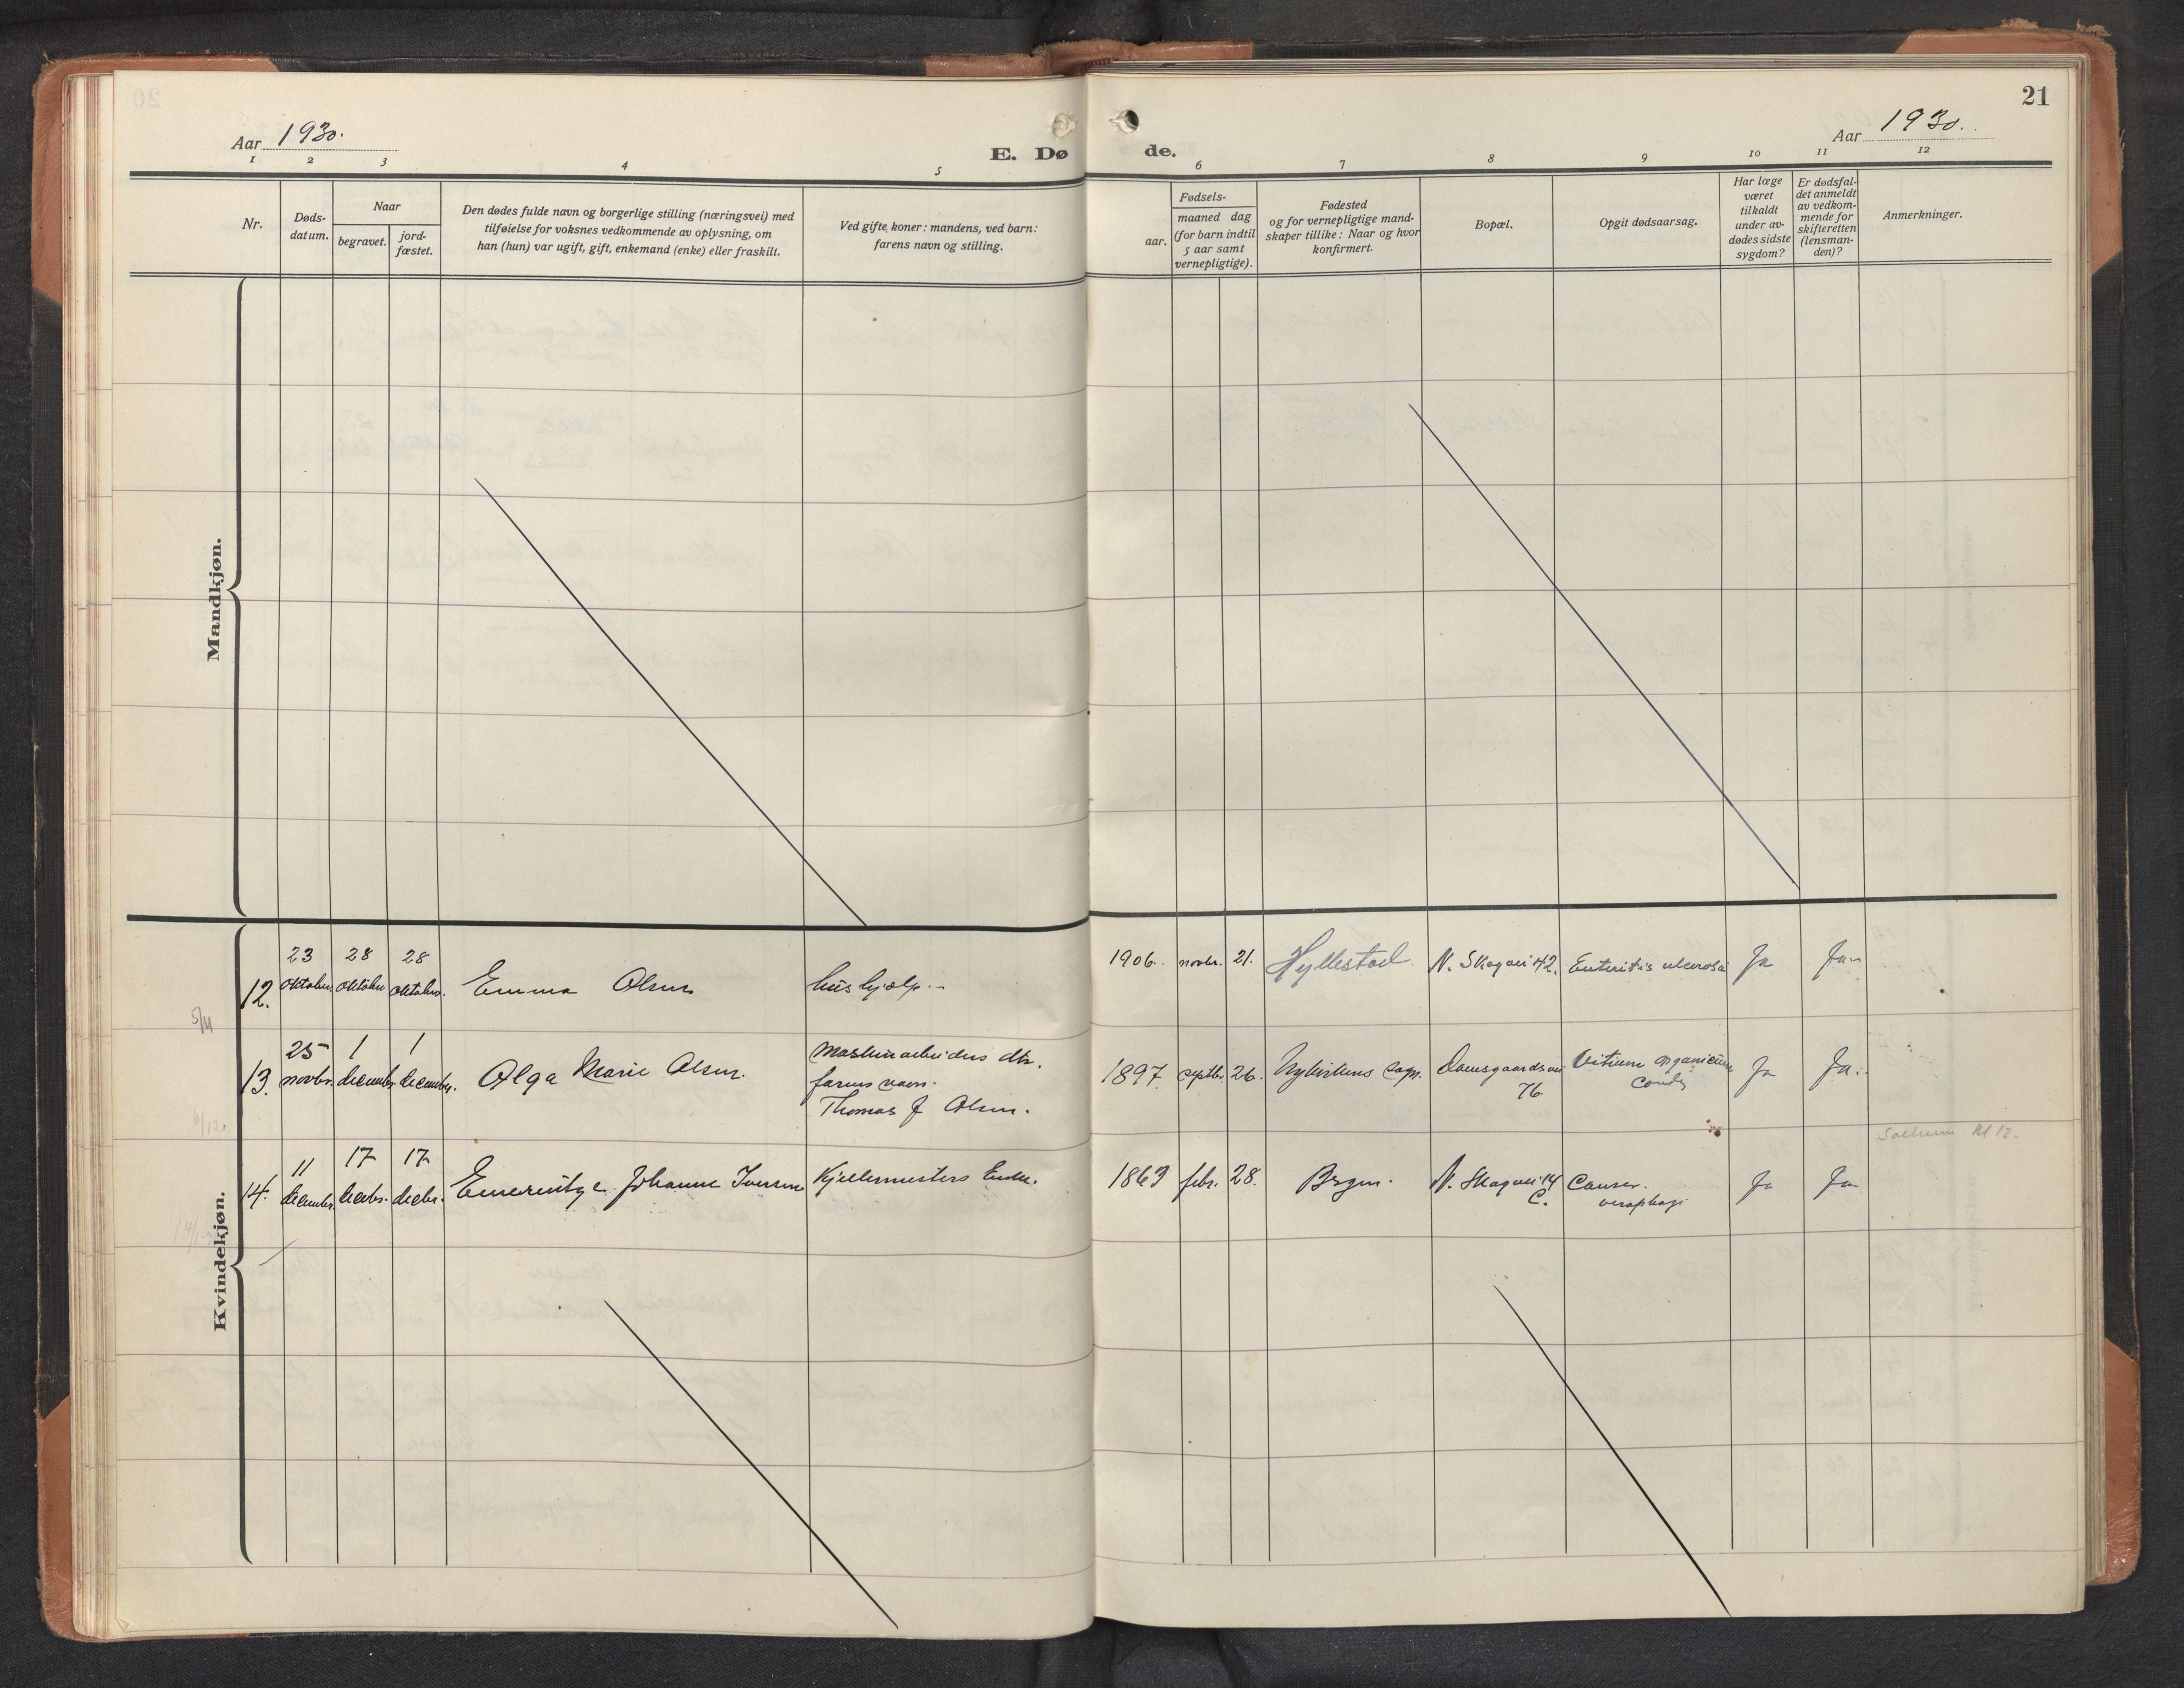 21
Aar 1930.
Aar 1930.
E. Dø de.
1 2 3 4 5 6 7 8 9 10 11 12
Nr.
Døds-
datum.
Naar
begravet.
jord-
fæstet.
Den dødes fulde navn og borgerlige stilling (næringsvei) med
tilføielse for voksnes vedkommende av oplysning, om
han (hun) var ugift, gift, enkemand (enke) eller fraskilt.
Ved gifte koner: mandens, ved barn:
farens navn og stilling.
Fødsels-
aar.
maaned dag
(for barn indtil
5 aar samt
vernepligtige).
Fødested
og for vernepligtige mand-
skaper tillike: Naar og hvor
konfirmert.
Bopæl.
Opgit dødsaarsag.
Har læge
været
tilkaldt
under av-
dødes sidste
sygdom?
Er dødsfal-
det anmeldt
av vedkom-
mende for
skifteretten
(lensman-
den)?
Anmerkninger.
Mandkjøn.
Kvindekjøn.
12. 23 oktober. 28 oktober 28 oktober. Emma Olsen hushjælp. 1906. novbr. 21. Hyllestad. N. Skogvei 42. Enteritis ulcerosa Ja Ja
5/11
13. 25 novbr. 1 decembr. 1 decembr. Olga Marie Olsen. Maskinarbeiders dtr.
farens navn.
Thomas J Olsen.
1897. septbr. 26. Nykirkens sogn. Damsgaardsvei
76
Vitium organicum
cordis
Ja Ja.
14. 11 decembr. 17 decbr. 17 decbr. Emerentze Johanne Iversen Kjellermesters Enke. 1863 febr. 28. Bergen. N. Skogvei 14
C.
Cancer.
Ja Ja
12.